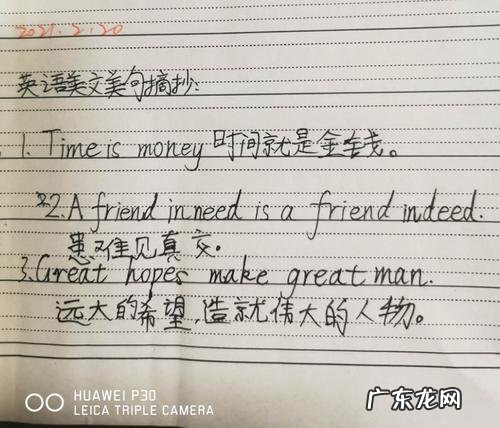 2021.2.20
英语美文美句摘抄:
1. Time is money 时间就是金钱。
2. A friend in need is a friend indeed.
患难见真交.
3. Great hopes make great man.
远大的希望,造就伟大的人物。
HUAWEI P30
LEICA TRIPLE CAMERA
广东龙网